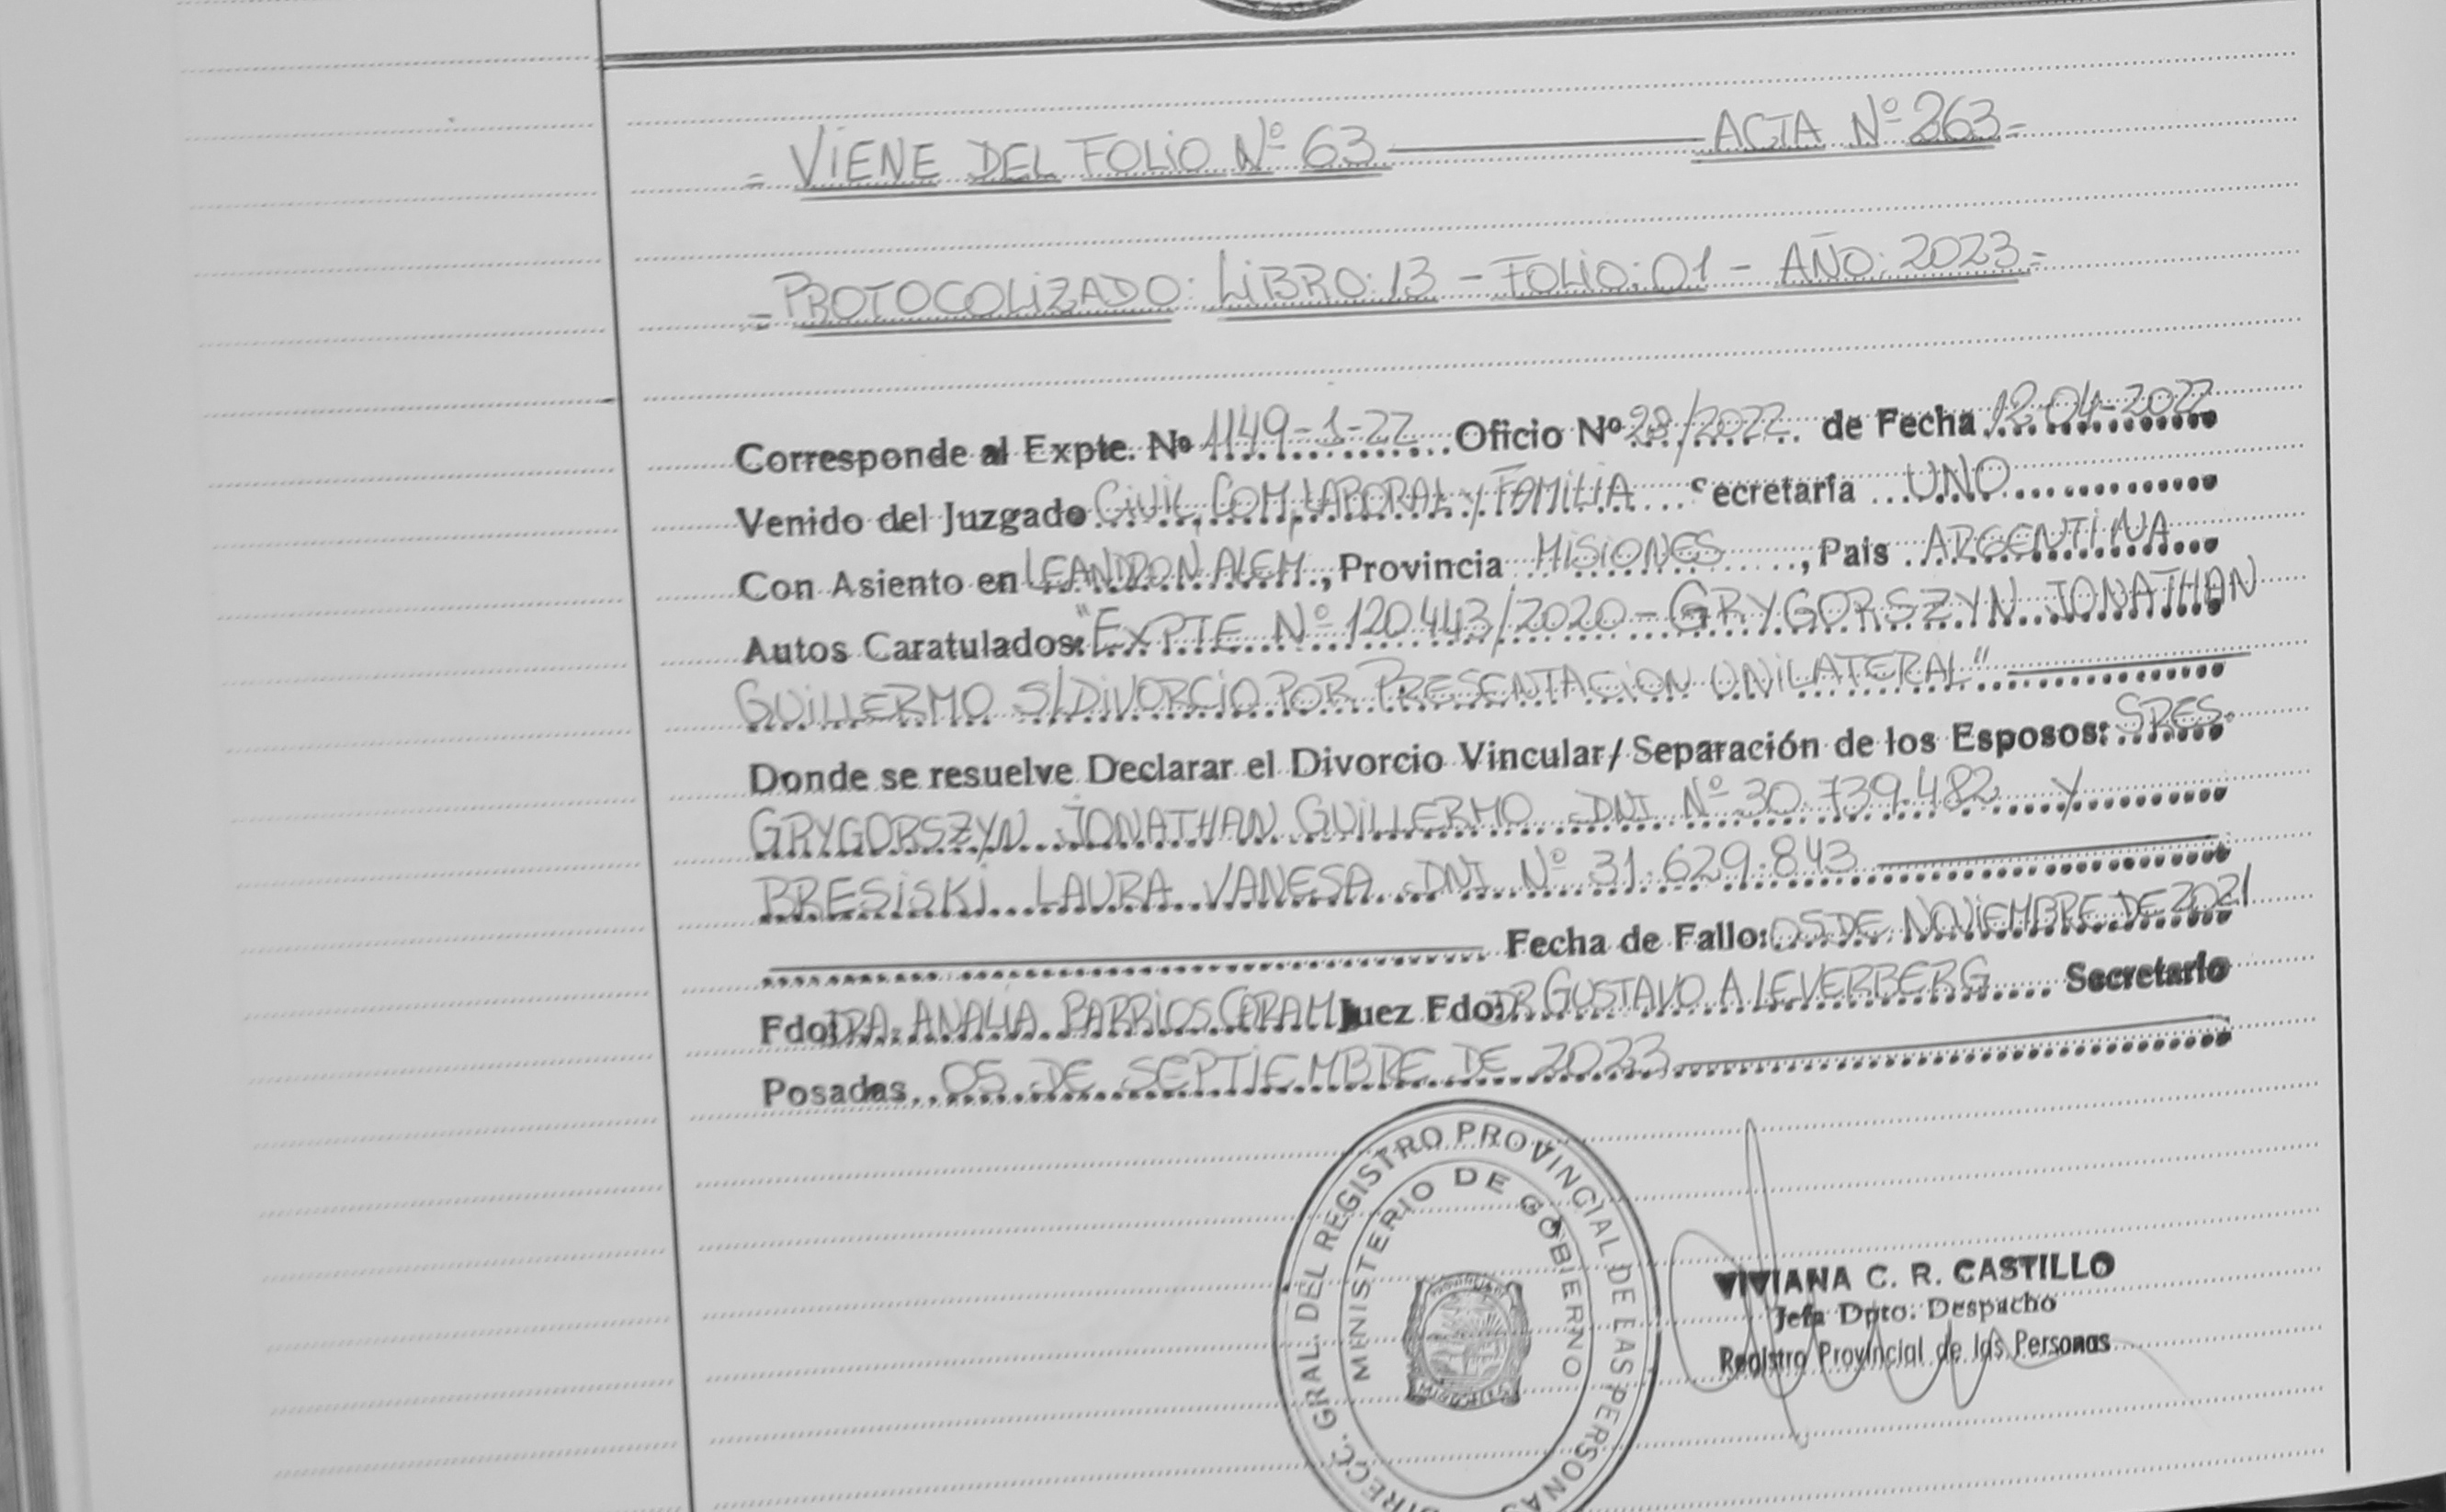 = VIENE DEL FOLIO Nº 63 ACTA Nº 263 =
= PROTOCOLIZADO: LIBRO: 13 - FOLIO: 01 - AÑO: 2023 =
Corresponde al Expte. Nº 1149-1-22 Oficio Nº 28/2022 de Fecha 12-04-2022
Venido del Juzgado CIVIL, COM, LABORAL y FAMILIA Secretaría UNO
Con Asiento en LEANDRO N ALEM, Provincia MISIONES, Pais ARGENTINA
Autos Caratulados: "EXPTE Nº 120443/2020 - GRYGORSZYN JONATHAN
GUILLERMO S/DIVORCIO POR PRESENTACION UNILATERAL"
Donde se resuelve Declarar el Divorcio Vincular/Separación de los Esposos: SRES.
GRYGORSZYN JONATHAN GUILLERMO DNI Nº 30.739.482 y
BRESISKI LAURA VANESA DNI Nº 31.629.843
Fecha de Fallo: 05 DE NOVIEMBRE DE 2021
Fdo: DRA. ANALÍA BARRIOS CARAM Juez Fdo: DR GUSTAVO A LEVERBERG Secretario
Posadas, 05 DE SEPTIEMBRE DE 2023
DIRECC. GRAL. DEL REGISTRO PROVINCIAL DE LAS PERSONAS
MINISTERIO DE GOBIERNO
MISIONES
VIVIANA C. R. CASTILLO
Jefa Dpto. Despacho
Registro Provincial de las Personas